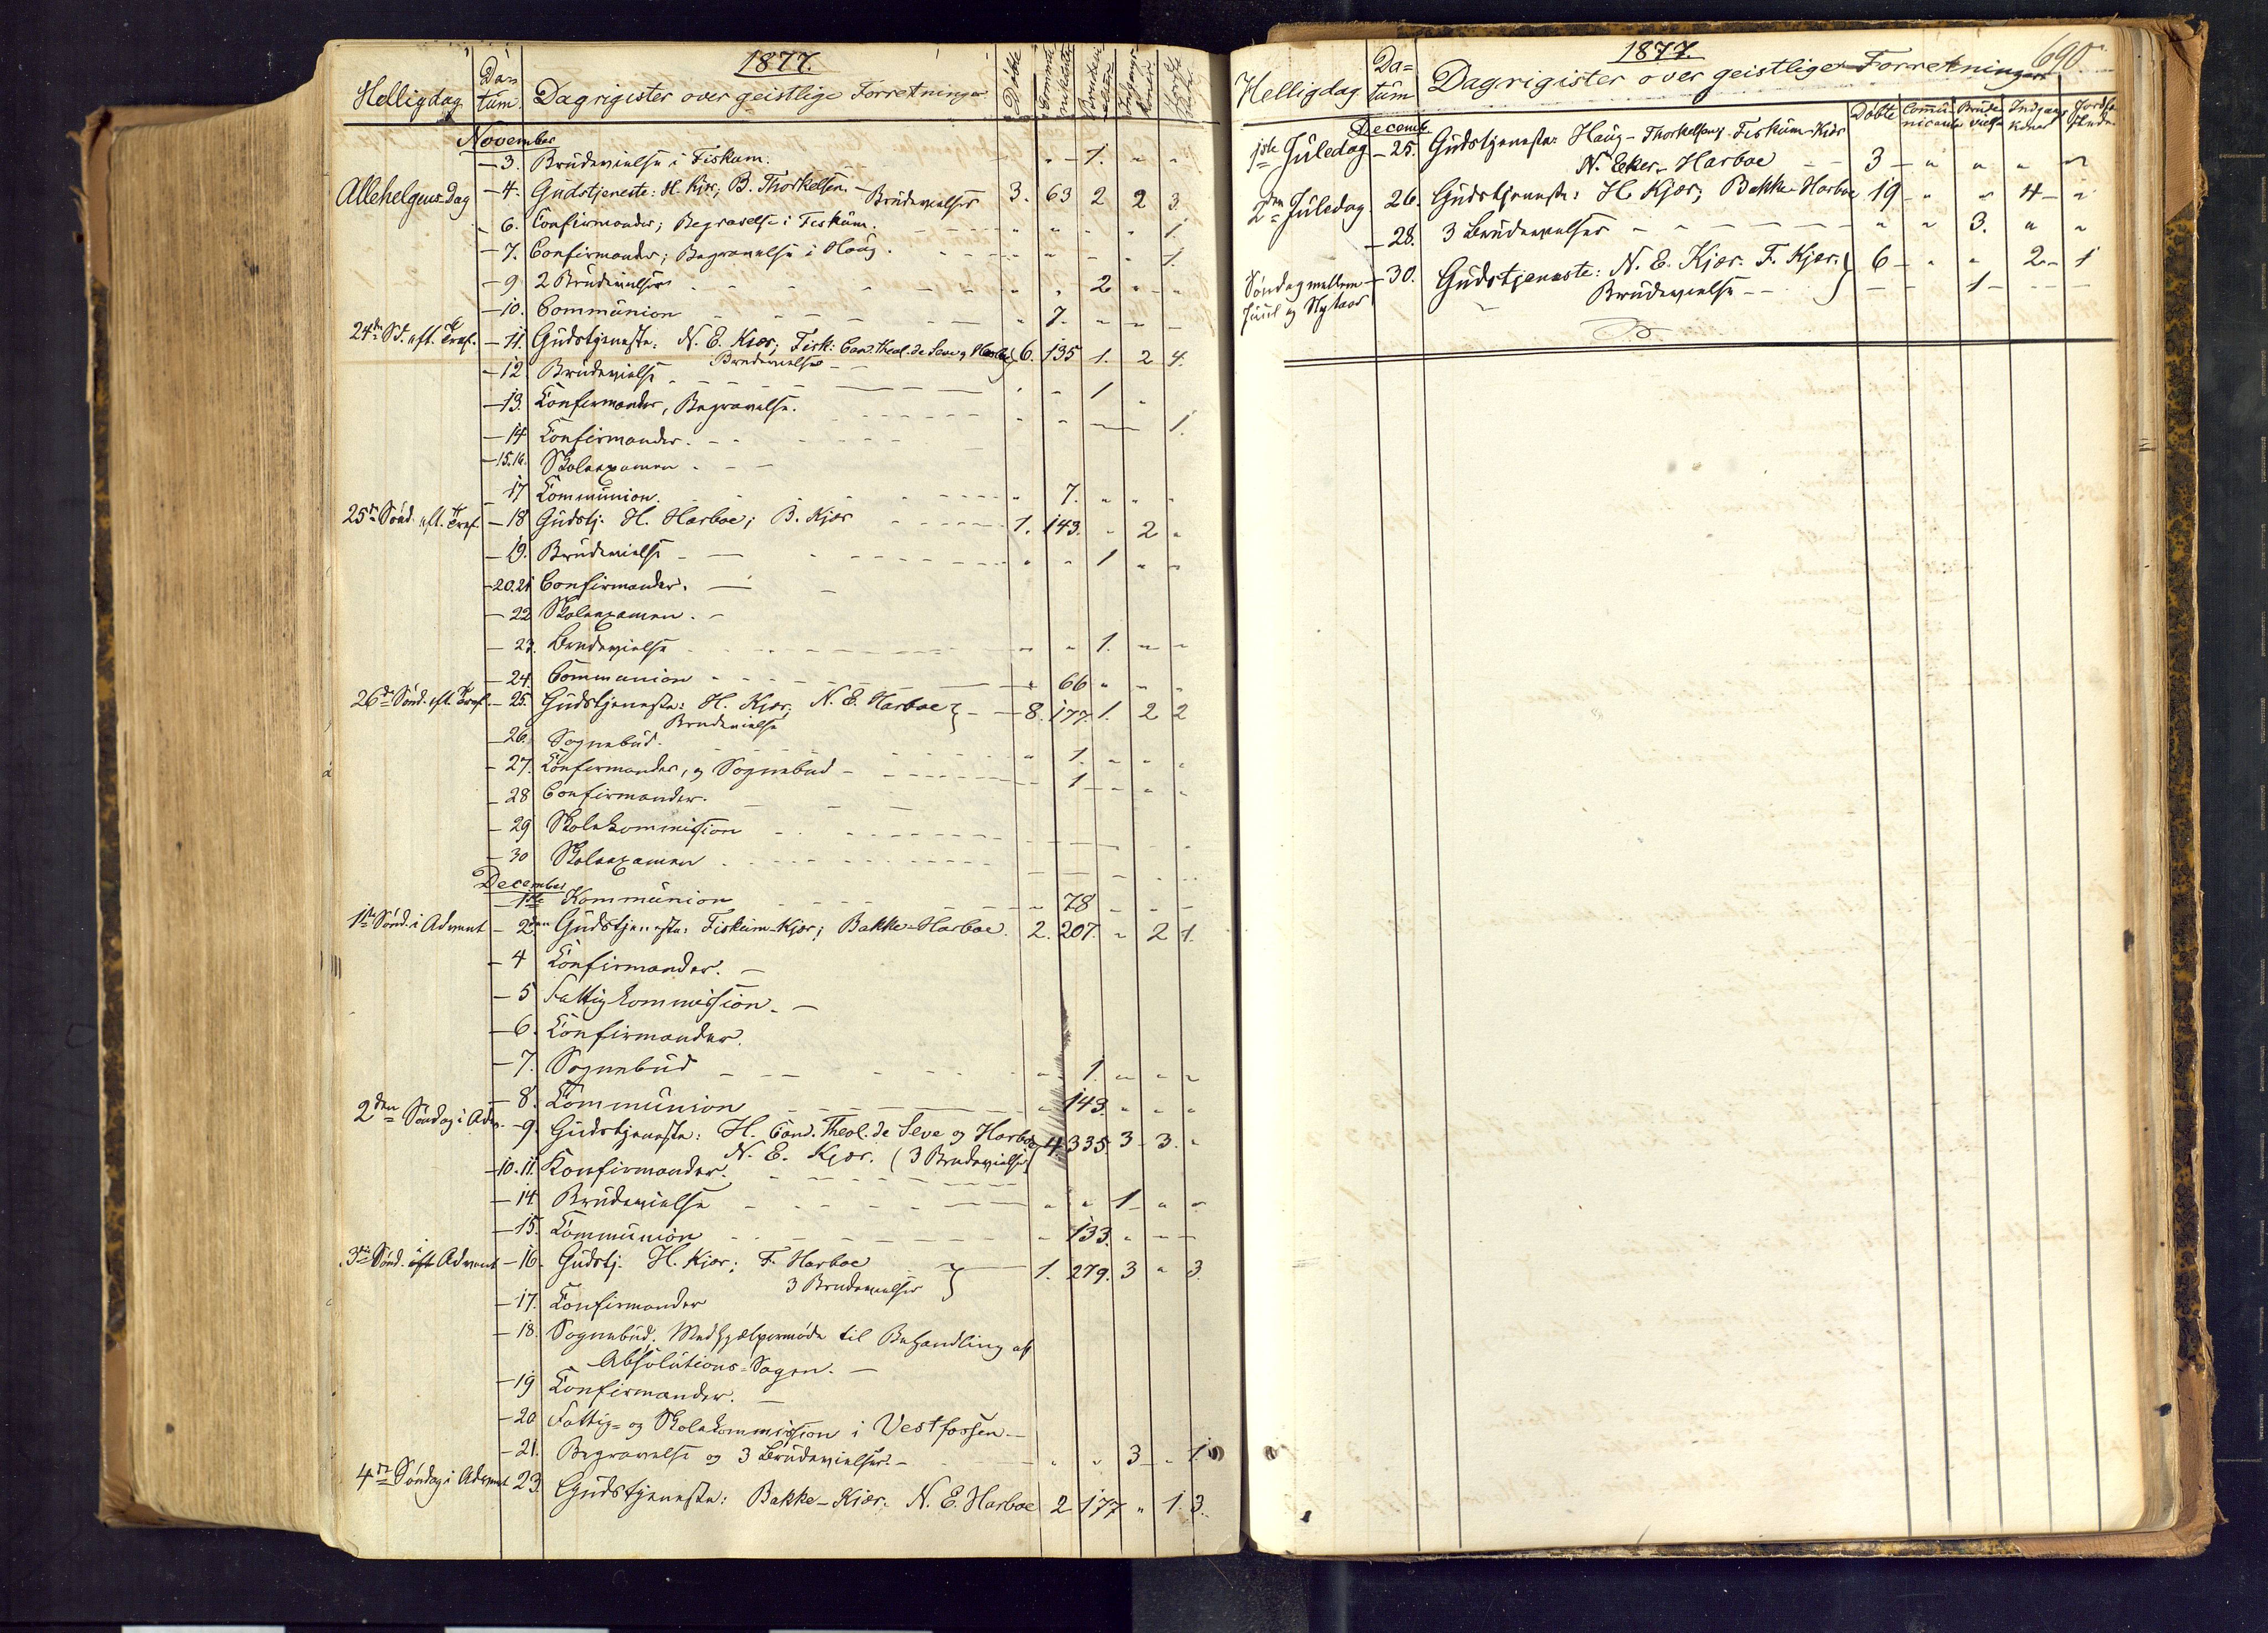 1877.
Helligdag Da= tum. Dagrigister over geistlige Forretninger Döbte Commu nikanter
November
— 3. Brüdevielse i Fiskum. " 1. " "
Allehelgens Dag — 4. Güdstjeneste: H. Kjær, B. Thorkelsen. — Brüdevielser 3. 63 2 2 3.
— 6. Confirmander; Begravelse i Fiskum. " " " " 1.
— 7. Confirmander; Begravelse i Haug. " " " " 1.
— 9 2 Brüdevielser " " 2 " "
— 10. Commünion " 7. " " "
24de Sd. eft. Tref. — 11. Güdstjeneste: N. E. Kiær; Fisk: Cand. Theol. de Seve og Harboe 6. 135 1. 2 4.
Brudevielse
— 12. Brüdevielse " " 1 "
— 13. Confirmander, Begravelse. 1.
— 14 Confirmander.
— 15.16. Skoleexamen
— 17 Commünion. " 7. " " "
25de Sönd. eft. Tref. — 18 Güdstj. H. Harboe; B. Kjær 1. 143. " 2 "
— 19. Brüdevielse " " 1 " "
— 20.21 Confirmander.
— 22 Skoleexamen.
— 23. Brudevielse " " 1. " "
— 24. Communion " 66 " " "
26de Sönd. eft. Tref. — 25. Güdstjeneste: H. Kjær, N. E. Harboe 8. 177. 1. 2 2
Brudevielse
— 26. Sognebüd. " 1. " " "
— 27. Confirmander, og Sognebud 1
— 28 Confirmander.
— 29 Skolekommission
— 30 Skoleexamen
December
— 1ste Kommünion 78
1ste Sönd. i Advent — 2den Güdstjeneste: Fiskum-Kjær; Bakke-Harboe. 2. 207. " 2 1.
— 4 Confirmander.
— 5 Fattigkommission.
— 6. Confirmander.
— 7. Sognebüd " 1. " " "
— 8. Commünion " 143. " " "
2den Söndag i Adv. — 9. Güdstjeneste: H. Cand. Theol. de Seve og Harboe 4 335. 3 3. "
N. E. Kjær. (3 Brudevielser)
— 10.11. Konfirmander.
— 14 Brüdevielse " " 1 " "
— 15. Commünion " 133. " "
3die Sönd. eft Advent — 16. Güdstj. H. Kjær; F. Harboe 1. 279. 3 " 3
3 Brudevielser
— 17. Confirmander
— 18. Sognebüd. Medhjælpermöde til Behandling af
Absolütions-Sagen.
— 19 Confirmander.
— 20 Fattig- og Skolekommission i Vestfossen —
— 21. Begravelse og 3 Brüdevielser. " " 3 " 1
4de Söndag i Advent 23. Güdstjeneste: Bakke-Kiær. N. E. Harboe 2 177 " 1. 3.
1877. 690
Helligdag Da= tüm Dagrigister over geistlige Forretninger
Döbte Commü nicanter Brüde vielse Indgangs Koner
Decemb
1ste Jüledag — 25. Güdstjeneste: Haug-Thorkelsen, Fiskum-Kiær
N. Eker-Harboe 3 " " " "
2den Jüledag 26. Güdstjeneste: H Kjær, Bakke-Harboe 19 " " 4 "
— 28. 3 Brüdevielser " " 3. " "
Søndag mellem — 30. Güdstjeneste: N. E. Kjær. F. Kjær. 6 " " 2 1
Juul og Nytaar Brüdevielse 1